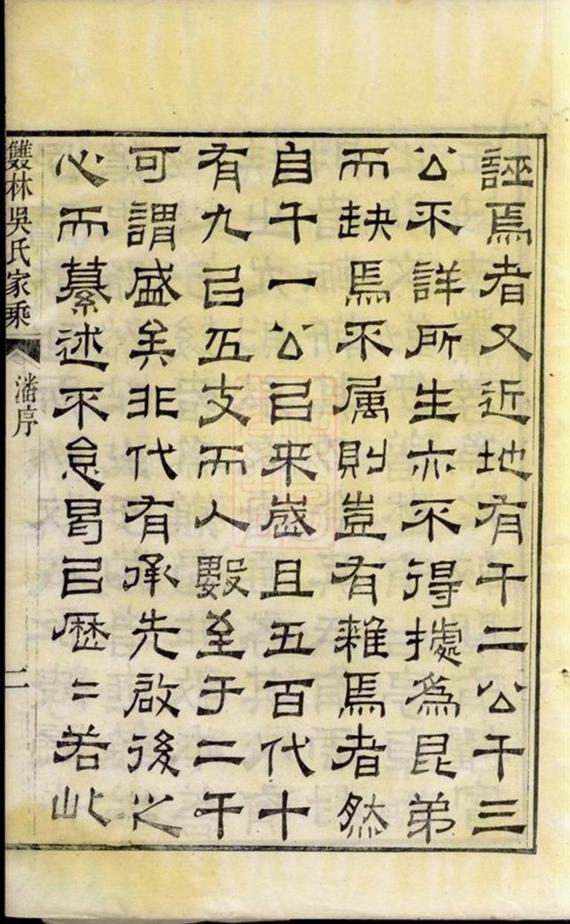 誣焉者又近地有千二公千三
公不詳所生亦不得㩀為昆弟
而缺焉不属則豈有雜焉者然
自千一公已来嵗且五百代十
有九已五支而人數至于二千
可謂盛矣非代有承先啟後之
心而纂述不怠曷已歷〻若此
雙林吳氏家乘
潘序
二